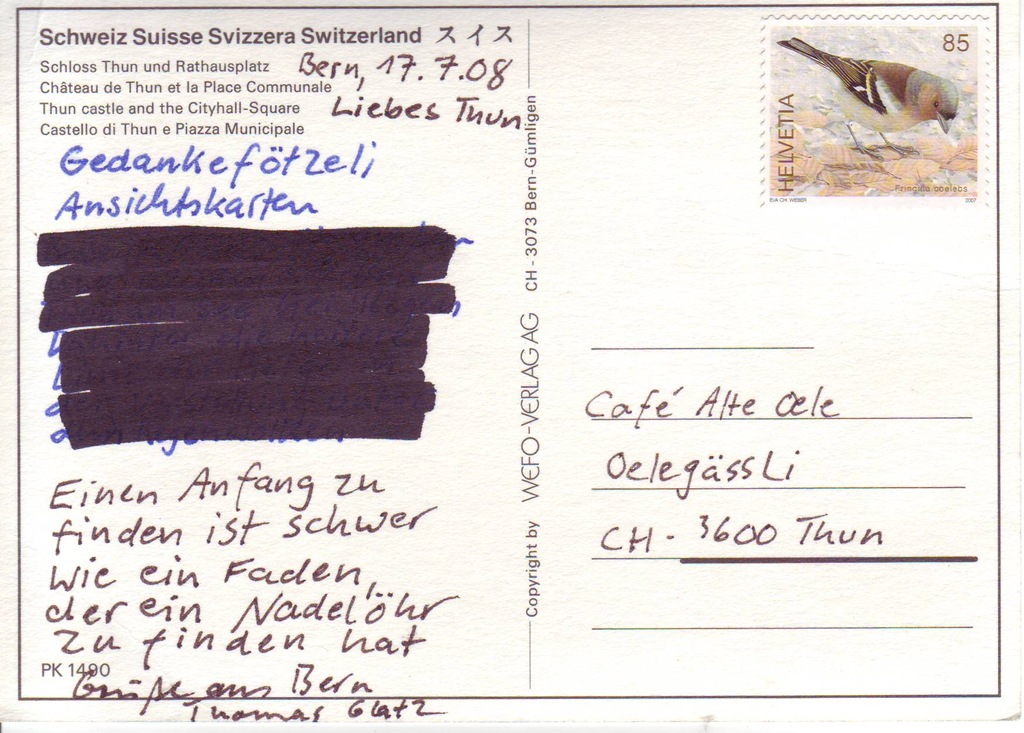 Schweiz Suisse Svizzera Switzerland スイス
Schloss Thun und Rathausplatz
Château de Thun et la Place Communale
Thun castle and the Cityhall-Square
Castello di Thun e Piazza Municipale
Bern, 17.7.08
Liebes Thun
Gedankefötzeli
Ansichtskarten
Einen Anfang zu
finden ist schwer
wie ein Faden,
der ein Nadelöhr
zu finden hat
PK 1490
Grüße aus Bern
Thomas Glatz
Copyright by WEFO-VERLAG AG CH - 3073 Bern-Gümligen
85
HELVETIA
Fringilla coelebs
EVA CH. WEBER 2007
Café Alte Oele
Oelegässli
CH - 3600 Thun